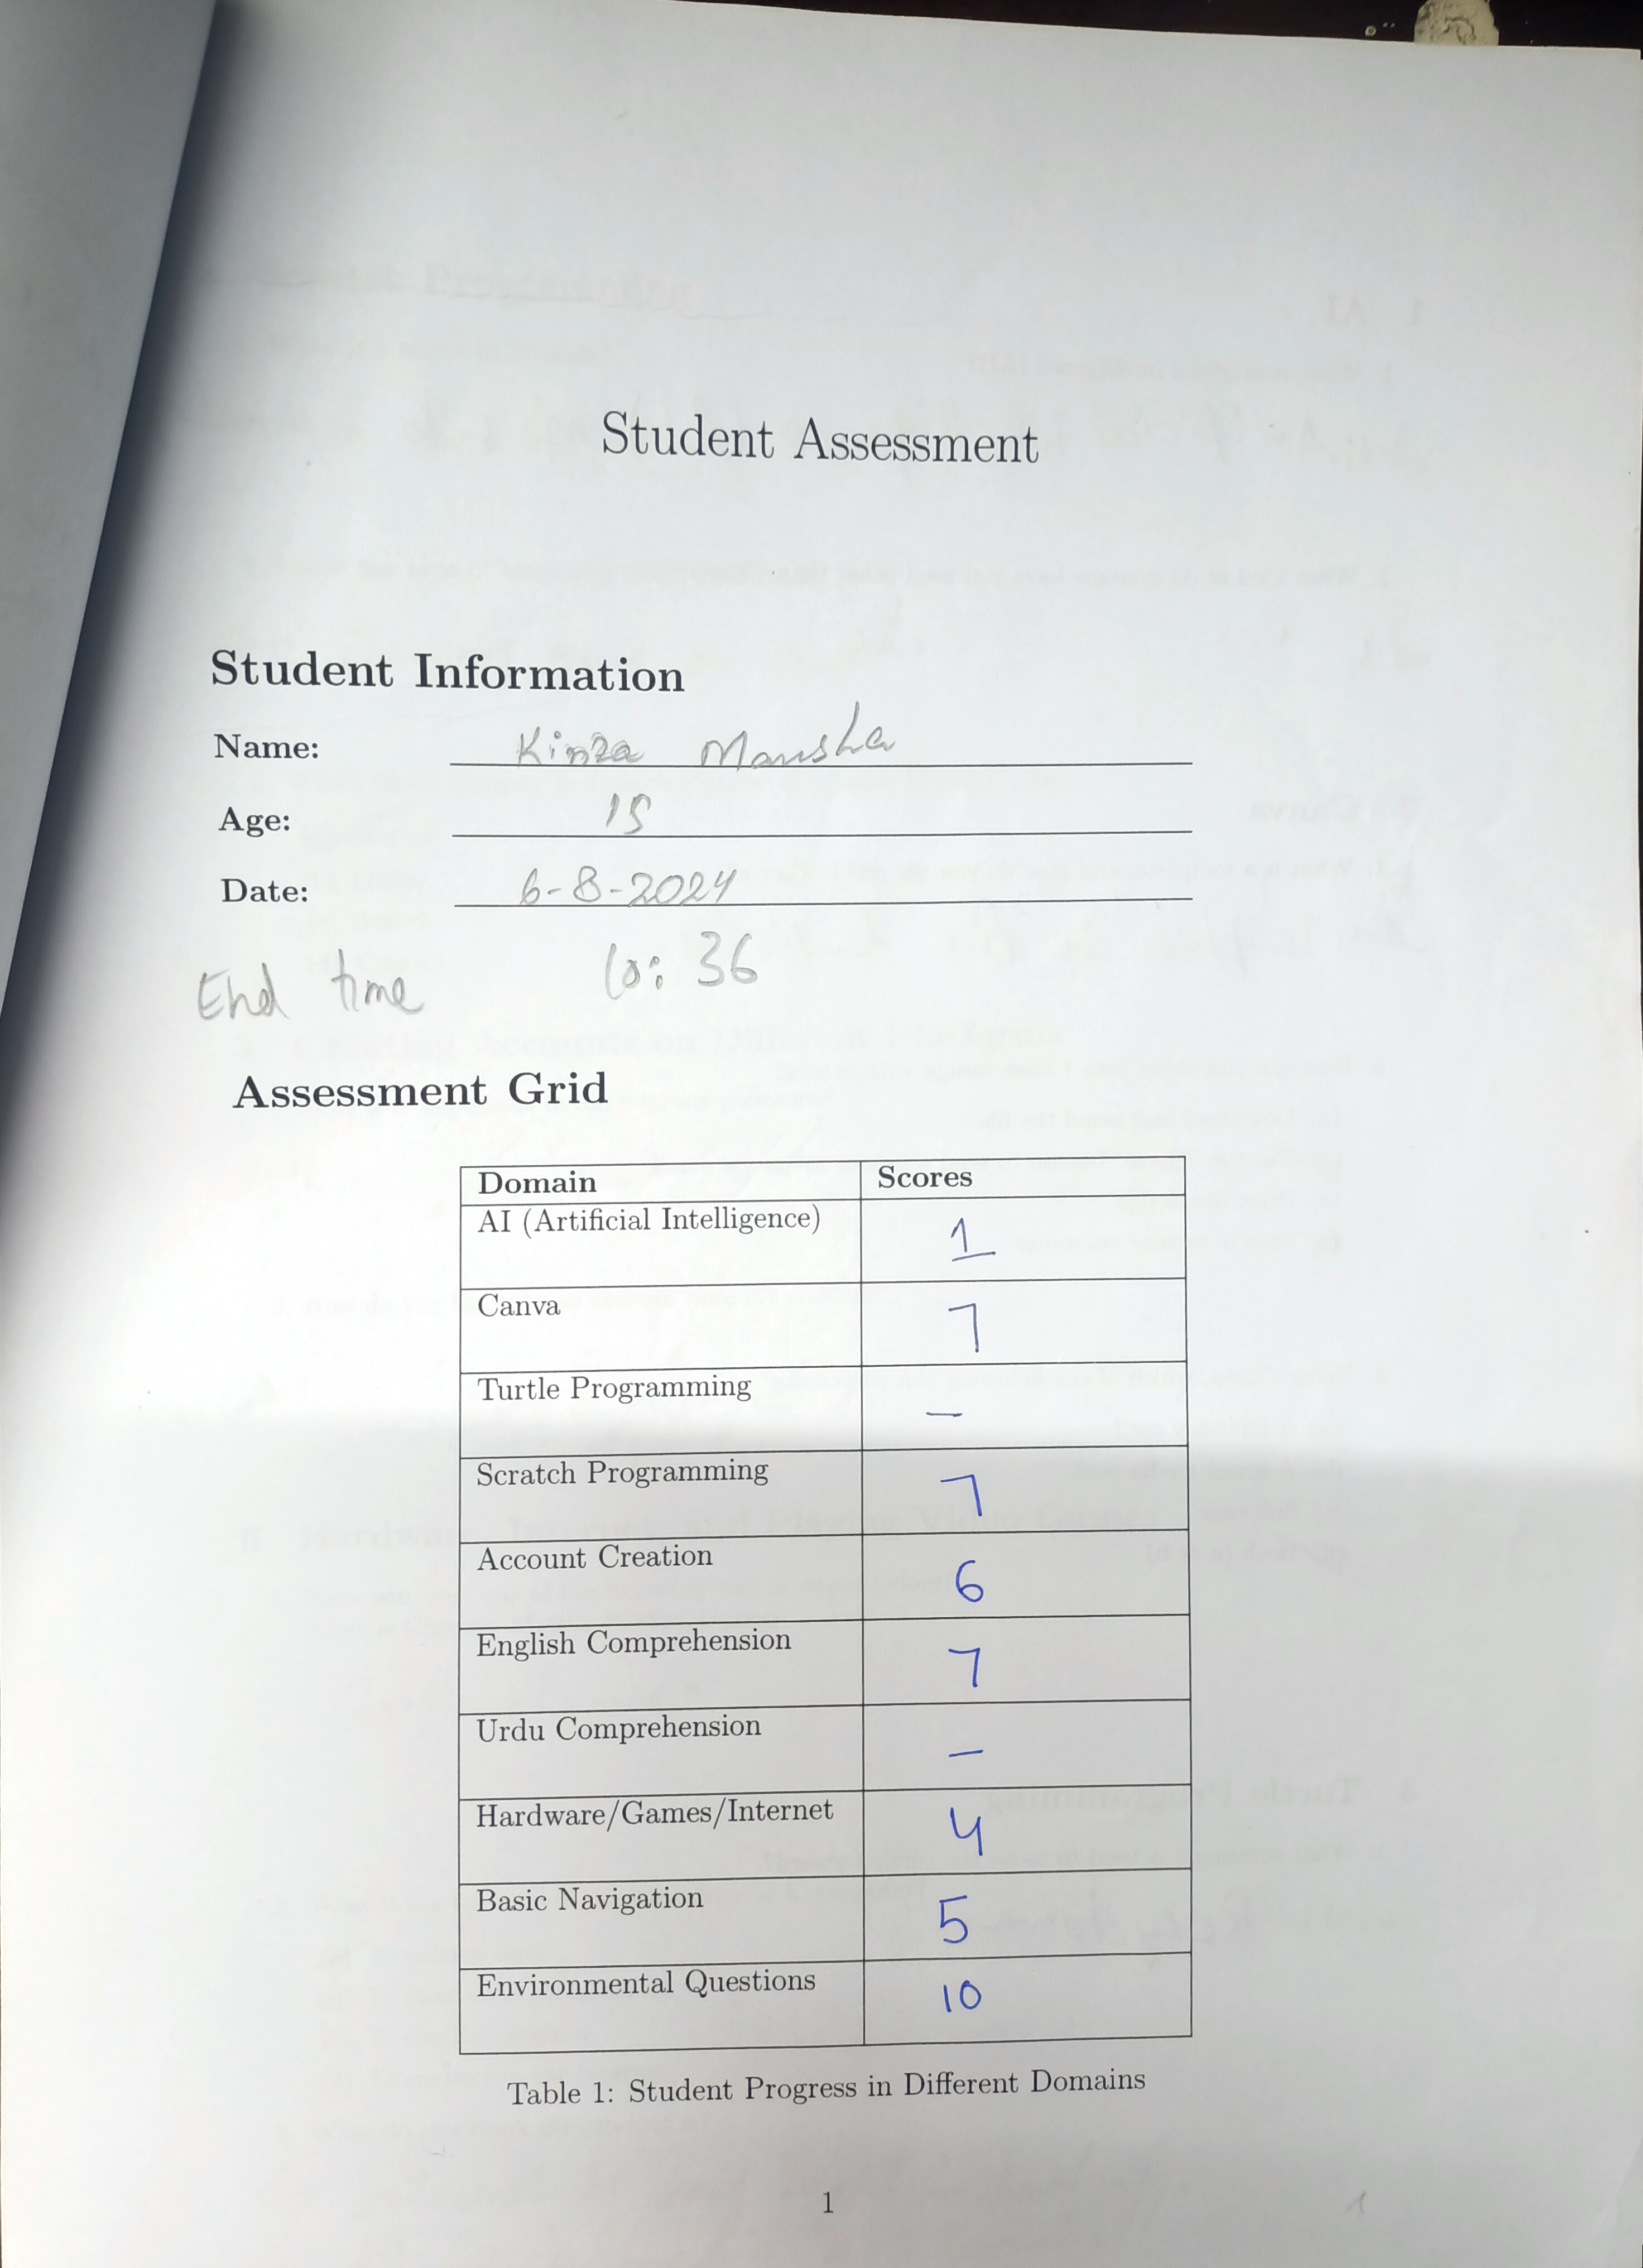 Student Assessment
Student Information
Name: Kinza Mansha
Age: 15
Date: 6-8-2024
End time 10:36
Assessment Grid
Domain Scores
AI (Artificial Intelligence) 1
Canva 7
Turtle Programming —
Scratch Programming 7
Account Creation 6
English Comprehension 7
Urdu Comprehension —
Hardware/Games/Internet 4
Basic Navigation 5
Environmental Questions 10
Table 1: Student Progress in Different Domains
1